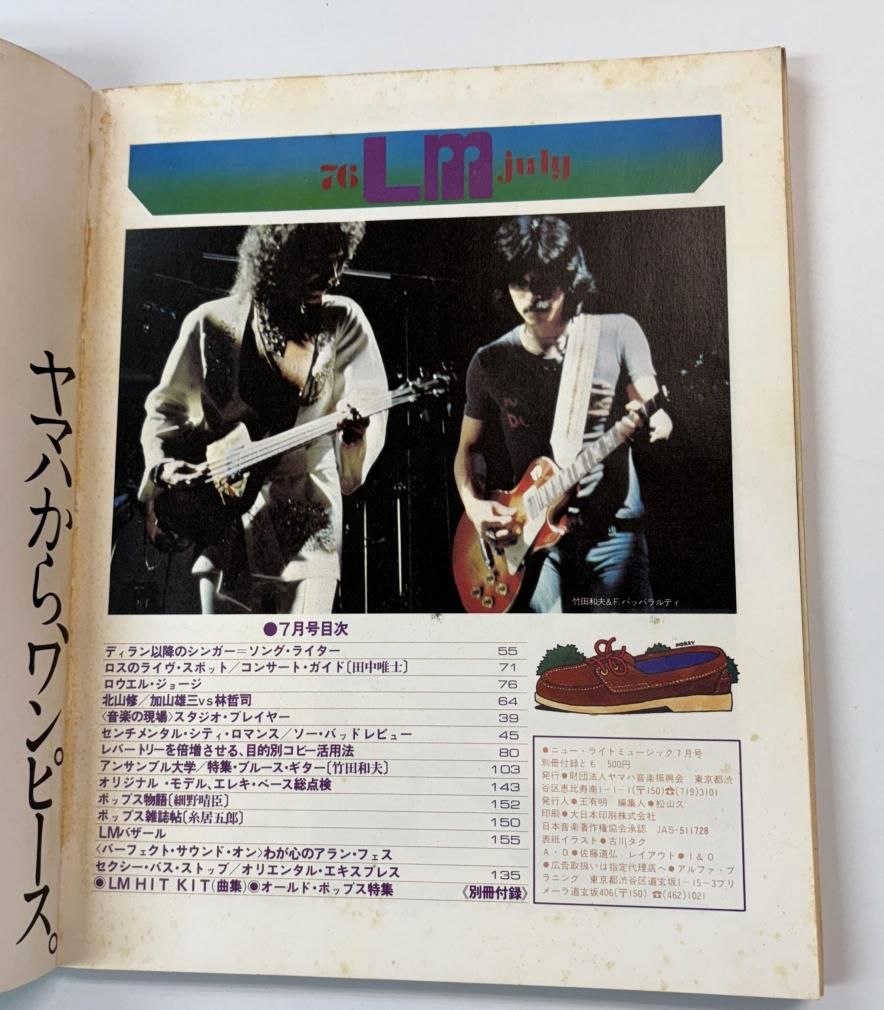 ヤマハから、ワンピース。
76 Lm july
竹田和夫&F.パッパラルディ
●7月号目次
ディラン以降のシンガー=ソング・ライター 55
ロスのライヴ・スポット/コンサート・ガイド〔田中唯士〕 71
ロウエル・ジョージ 76
北山修/加山雄三vs林哲司 64
〈音楽の現場〉スタジオ・プレイヤー 39
センチメンタル・シティ・ロマンス/ソー・バッドレビュー 45
レパートリーを倍増させる、目的別コピー活用法 80
アンサンブル大学/特集・ブルース・ギター〔竹田和夫〕 103
オリジナル・モデル、エレキ・ベース総点検 143
ポップス物語〔細野晴臣〕 152
ポップス雑誌帖〔糸居五郎〕 150
LMバザール 155
〈パーフェクト・サウンド・オン〉わが心のアラン・フェス
セクシー・バス・ストップ/オリエンタル・エキスプレス 135
●LM HIT KIT(曲集)●オールド・ポップス特集 《別冊付録》
●ニュー・ライトミュージック7月号
別冊付録とも 500円
発行●財団法人ヤマハ音楽振興会 東京都渋
谷区恵比寿南1-1-1(〒150)☎(719)3101
発行人●王有明 編集人●松山久
印刷●大日本印刷株式会社
日本音楽著作権協会承認 JAS-511728
表紙イラスト●古川タク
A・D●佐藤道弘 レイアウト●I&O
●広告取扱いは指定代理店へ●アルファ・プ
ラニング 東京都渋谷区道玄坂1-15-3プリ
メーラ道玄坂406(〒150) ☎(462)1021